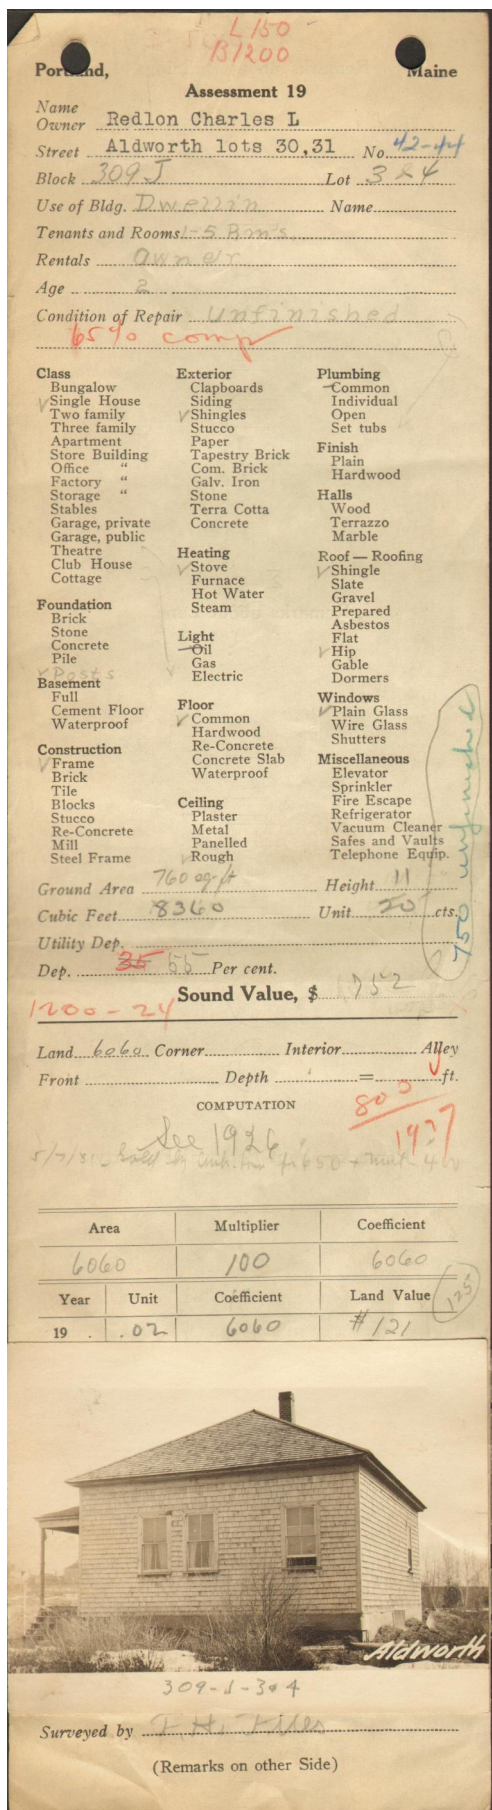 L 150
B1200
Portland, Maine
Assessment 19
Name
Owner Redlon Charles L
Street Aldworth lots 30,31 No 42-44
Block 309 J Lot 3 & 4
Use of Bldg. Dwellin Name
Tenants and Rooms 1-5 Rm's
Rentals Owner
Age 2
Condition of Repair Unfinished
65% comp
Class
Bungalow
Single House
Two family
Three family
Apartment
Store Building
Office "
Factory "
Storage "
Stables
Garage, private
Garage, public
Theatre
Club House
Cottage
Foundation
Brick
Stone
Concrete
Pile
Posts
Basement
Full
Cement Floor
Waterproof
Construction
Frame
Brick
Tile
Blocks
Stucco
Re-Concrete
Mill
Steel Frame
Exterior
Clapboards
Siding
Shingles
Stucco
Paper
Tapestry Brick
Com. Brick
Galv. Iron
Stone
Terra Cotta
Concrete
Heating
Stove
Furnace
Hot Water
Steam
Light
Oil
Gas
Electric
Floor
Common
Hardwood
Re-Concrete
Concrete Slab
Waterproof
Ceiling
Plaster
Metal
Panelled
Rough
Plumbing
Common
Individual
Open
Set tubs
Finish
Plain
Hardwood
Halls
Wood
Terrazzo
Marble
Roof — Roofing
Shingle
Slate
Gravel
Prepared
Asbestos
Flat
Hip
Gable
Dormers
Windows
Plain Glass
Wire Glass
Shutters
Miscellaneous
Elevator
Sprinkler
Fire Escape
Refrigerator
Vacuum Cleaner
Safes and Vaults
Telephone Equip.
750 unfinished
Ground Area 760 sq ft Height 11
Cubic Feet 8360 Unit 20 cts.
Utility Dep.
Dep. 35 55 Per cent.
Sound Value, $ 752
1200-24
Land 6060 Corner Interior Alley
Front Depth = ft.
COMPUTATION
800
1927
See 1926
5/7/31 Sold by
Area Multiplier Coefficient
6060 100 6060
Year Unit Coefficient Land Value
125
19 . .02 6060 #121
Aldworth
309-J-3&4
Surveyed by
(Remarks on other Side)